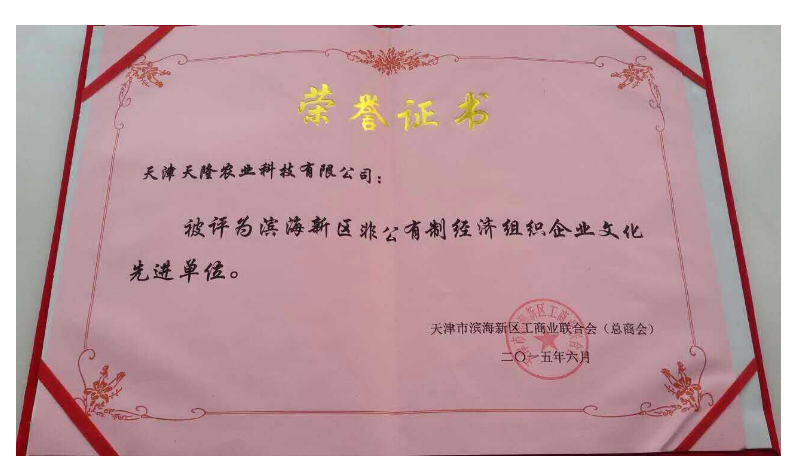 荣誉证书
天津天隆农业科技有限公司：
被评为滨海新区非公有制经济组织企业文化
先进单位。
天津市滨海新区工商业联合会（总商会）
二〇一五年六月